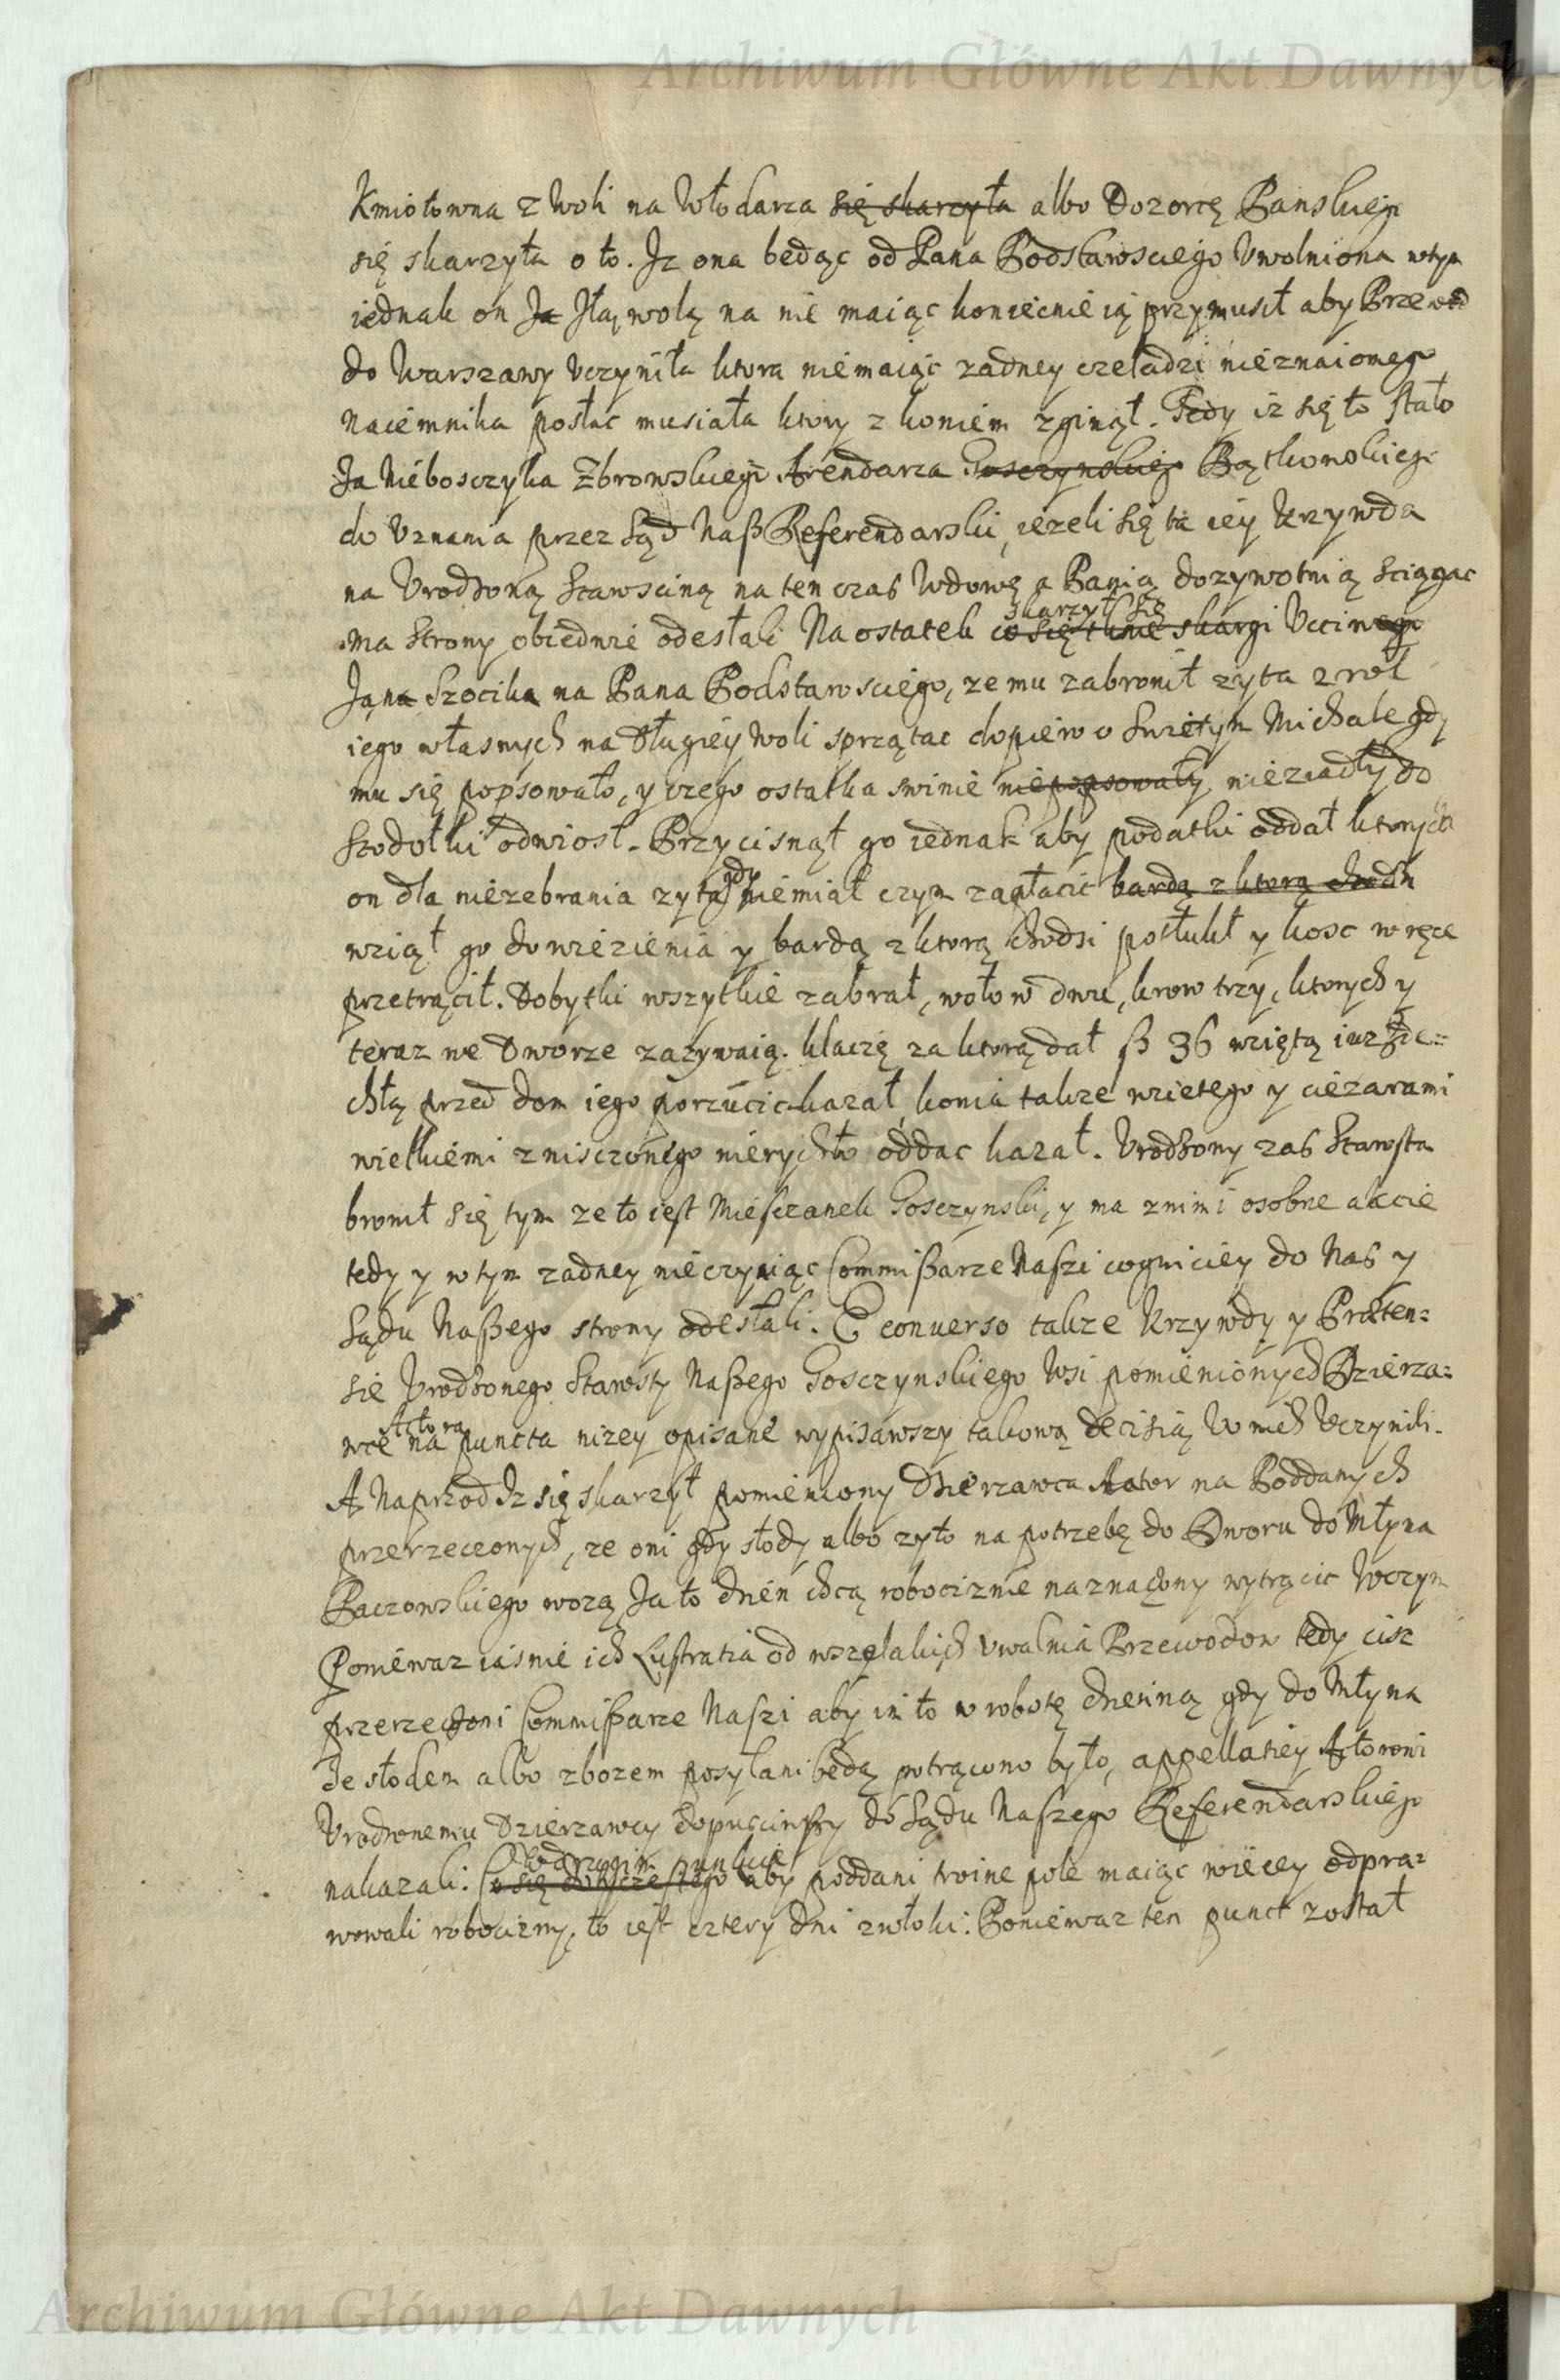 Archiwum Główne Akt Dawnych
Kmiotowna z Woli na Włodarza się skarzyła albo Dozorcę Panskiego
się skarzyła o to. Iz ona będąc od Pana Podstarosciego Uwolniona wtym
iednak on Ja złą wolą na nie maiąc koniecnie ią przymusił aby Przewod
do Warszawy Uczyniła ktora niemaiąc zadney czeladzi nieznaiomego
naiemnika posłac musiała ktory z koniem zginął. Tedy iz się to stało
Za Nieboszczyka Zbrowskiego Arendarza Gosczynskiego Bątkowskiego
do Uznania przez Sąd Naß Referendarski, iezeli się ta iey krzywda
na Urodzoną Starosciną na ten czas Wdowę a Panią dozywotnią sciągac
ma Strony obiedwie odesłali Na ostatek co się tknie skargi Ucciwego
skarzył się
Jana Szocika na Pana Podstarosciego, ze mu zabronił zyta z rol
iego własnych na Długiey Woli sprzątac dopiero o Swiętym Michale gdy
mu się popsowało, y czego ostatka swinie niepopsowały nieziadły do
Stodołki odwiosł. Przycisnął go iednak aby podatki oddał ktorych
on dla niezebrania zyta gdy niemiał czym zapłacic bardą z ktorą chodzi
wziął go do więzienia y bardą z ktorą chodzi potłukł y kosc w ręce
przetrącił. Dobytki wszytkie zabrał, wołow dwu, krow trzy, ktorych y
teraz we Dworze zazywaią. klaczę za ktorą dał ß 36 wziętą iuz zde=
chłą przed dom iego porzucic kazał, konia takze wziętego y cięzarami
wielkiemi znisczonego nierychło oddac kazał. Urodzony zas Starosta
bronił się tym ze to iest Miesczanek Gosczynski, y ma z nimi osobne akcie
tedy y w tym zadney nieczyniąc Commißarze Naszi cogniciey do Nas y
Sądu Naßego strony odesłali. E conuerso takze Krzywdy y Præten=
sie Urodzonego Starosty Naßego Gosczynskiego Wsi pomienionych Dzierza=
wce Actora na puncta nizey opisane wypisawszy takową decisią W nich Uczynili.
A Naprzod Iz się skarzył pomieniony Dzierzawca Actor na Poddanych
przerzeczonych, ze oni gdy słody albo zyto na potrzebę do Dworu do Młyna
Paczowskiego wozą Za to dzien chcą robociznie naznaczony wytrącic Wczym
Poniewaz iasnie ich Lustratia od wszelakich Uwalnia Przewodow tedy cisz
przerzeczoni Commißarze Naszi aby im to w robotę dnesiną gdy do Młyna
Ze słodem albo zbozem posyłani będą potrącono było, appellatiey Actorowi
Urodzonemu Dzierzawcy dopusciwßy do Sądu Naszego Referendarskiego
nakazali: Co się dotycze tego aby poddani troine pole maiąc więcey odpra=
W drugim punkcie
wowali robocizny, to iest cztery dni z włoki: Poniewaz ten punct został
Archiwum Główne Akt Dawnych